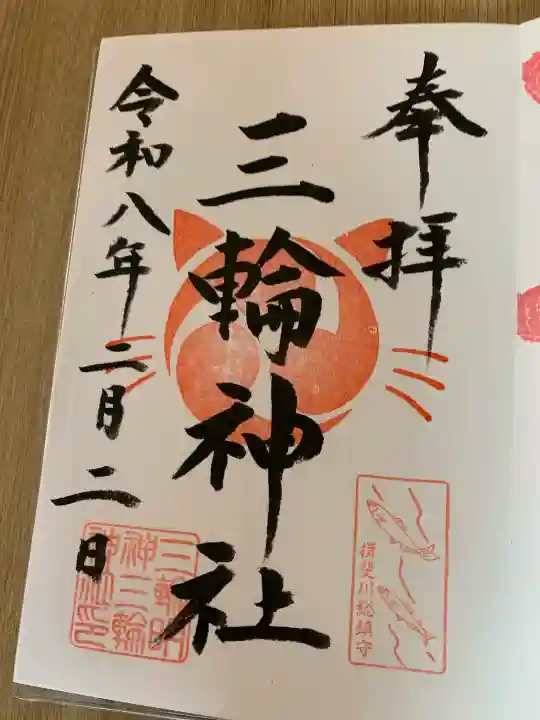 奉拝
三輪神社
令和八年二月二日
揖斐川総鎮守
三輪明
神三輪
神社印